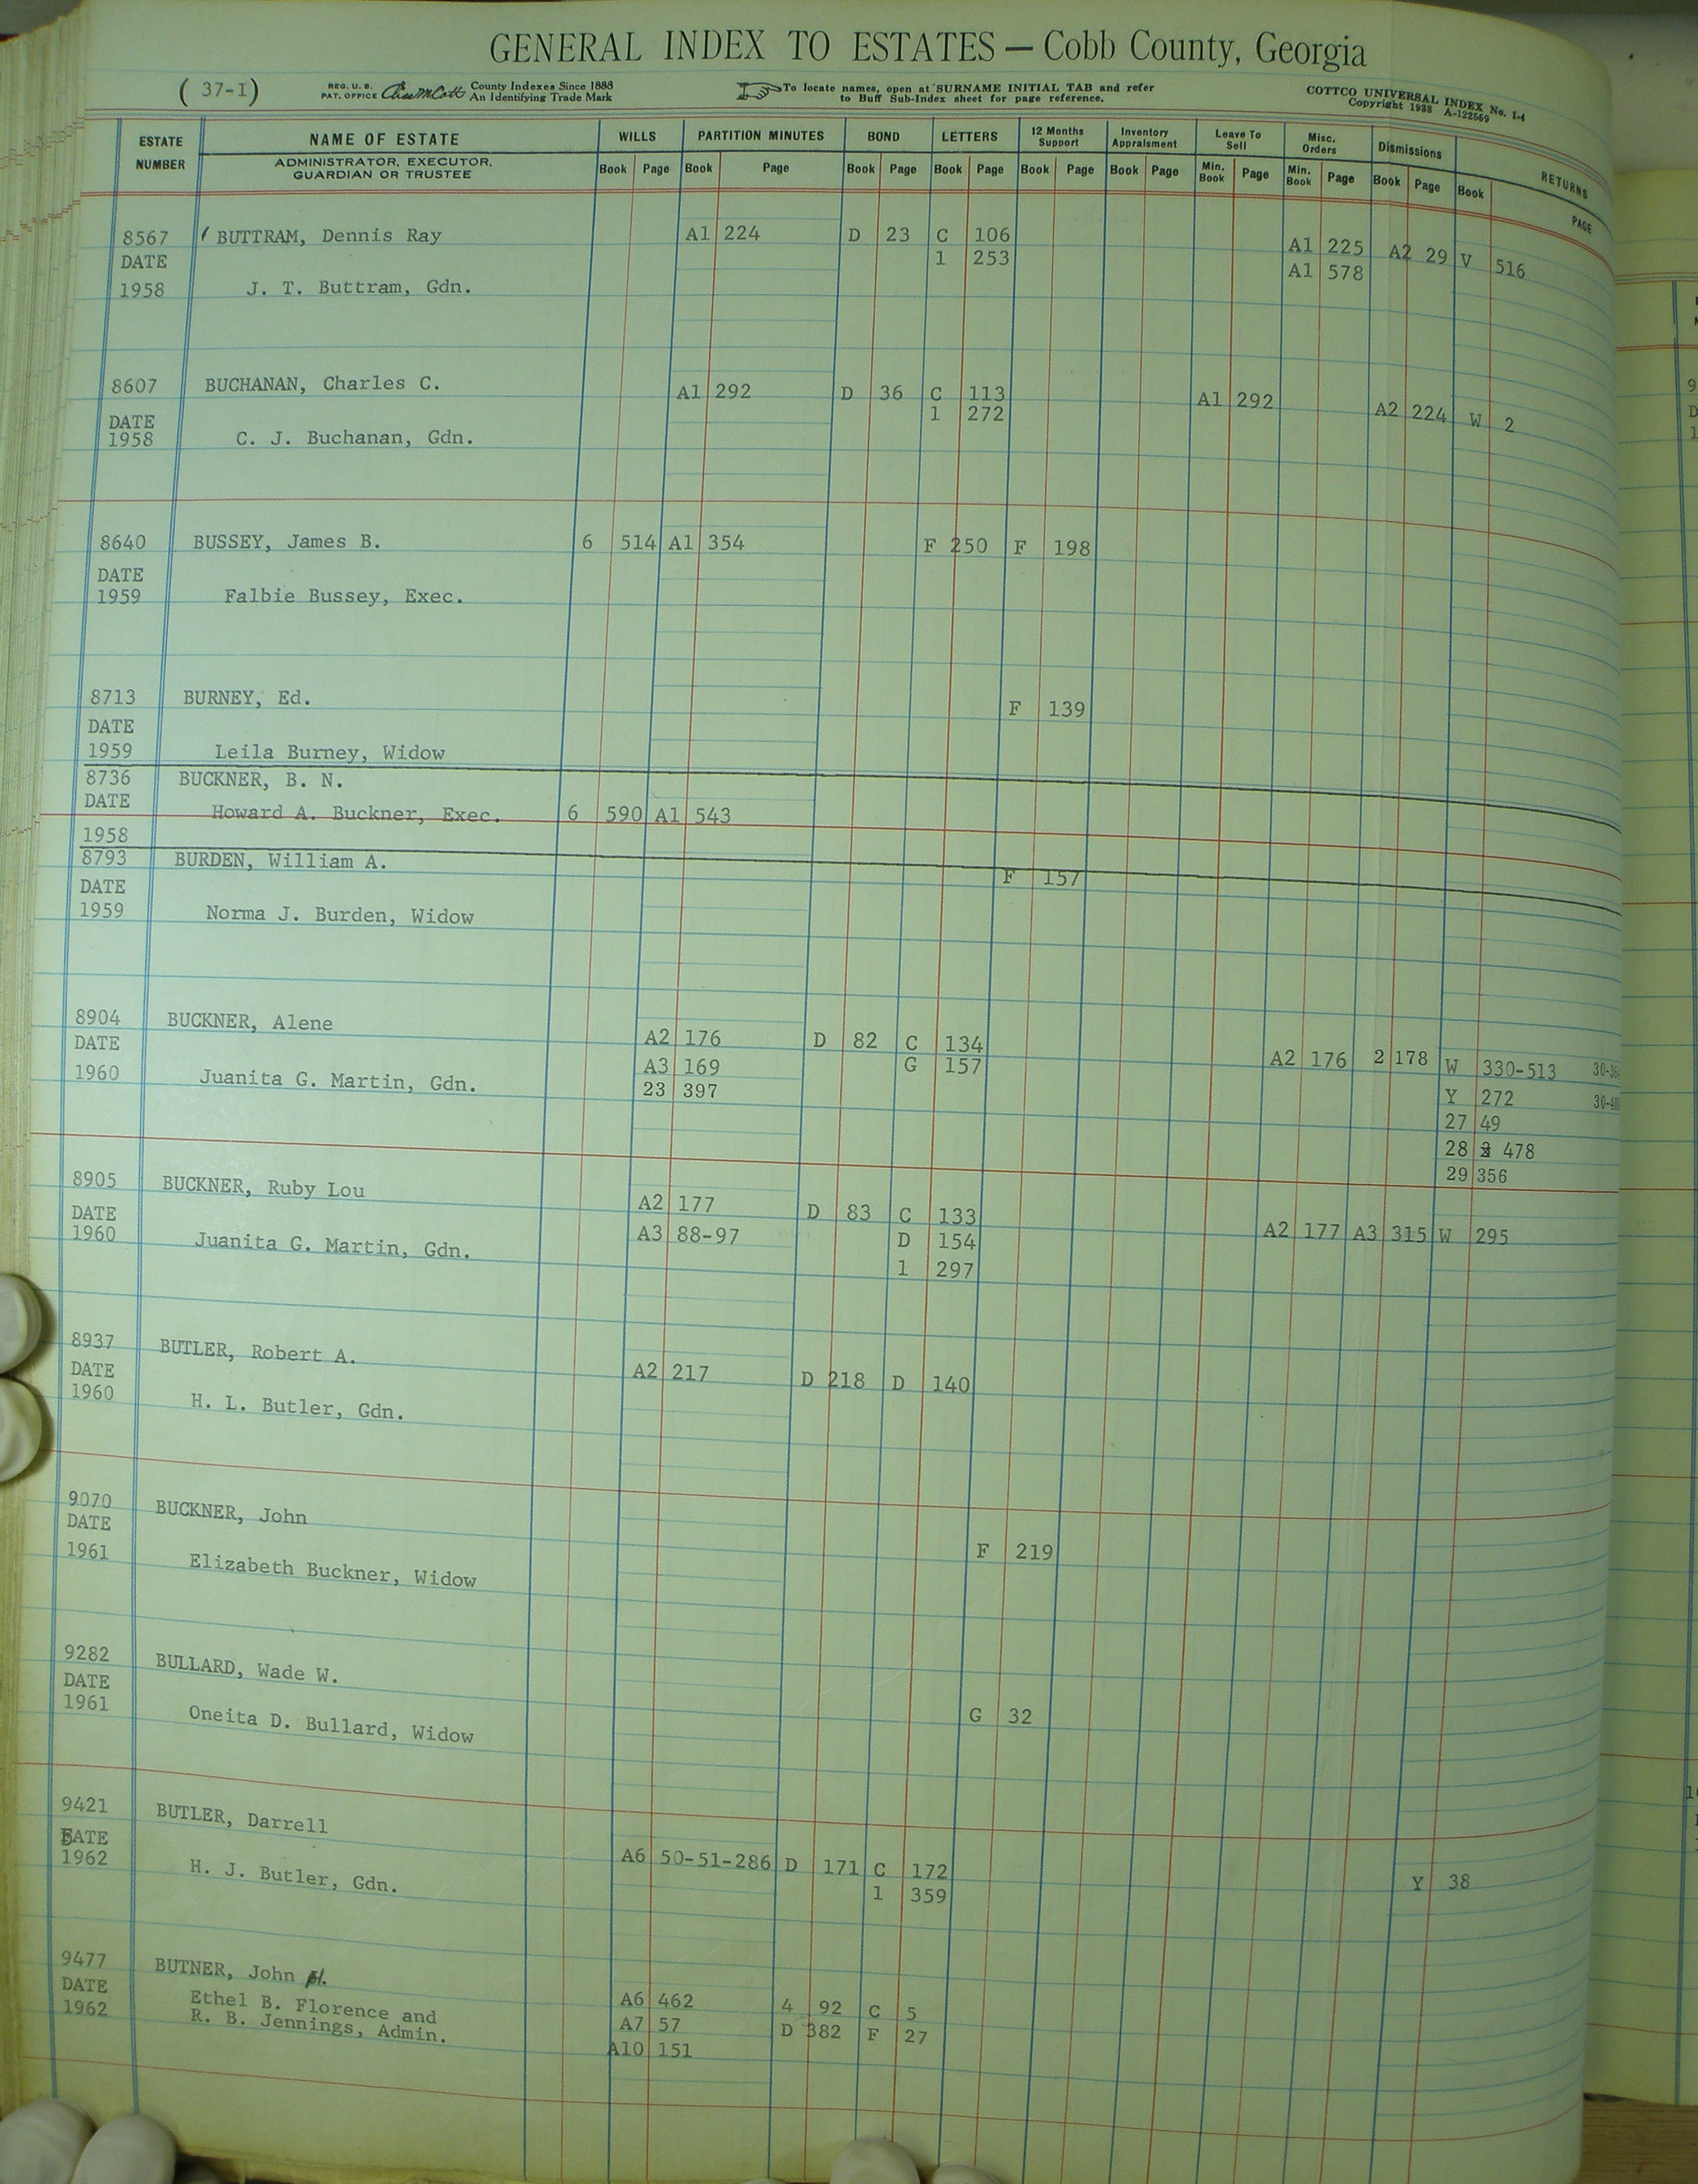 GENERAL INDEX TO ESTATES — Cobb County, Georgia
( 37-I )
REG. U. S. PAT. OFFICE
County Indexes Since 1888
An Identifying Trade Mark
To locate names, open at SURNAME INITIAL TAB and refer
to Buff Sub-Index sheet for page reference.
COTTCO UNIVERSAL INDEX No. 1-4
Copyright 1933 A-122569
ESTATE NUMBER NAME OF ESTATE WILLS PARTITION MINUTES BOND LETTERS 12 Months Support Inventory Appraisment Leave To Sell Misc. Orders Dismissions RETURNS
ADMINISTRATOR, EXECUTOR, GUARDIAN OR TRUSTEE Book Page Book Page Book Page Book Page Book Page Book Page Min. Book Page Min. Book Page Book Page Book PAGE
8567 BUTTRAM, Dennis Ray A1 224 D 23 C 106 A1 225 A2 29 V 516
DATE 1 253 A1 578
1958 J. T. Buttram, Gdn.
8607 BUCHANAN, Charles C. A1 292 D 36 C 113 A1 292 A2 224 W 2
DATE 1 272
1958 C. J. Buchanan, Gdn.
8640 BUSSEY, James B. 6 514 A1 354 F 250 F 198
DATE
1959 Falbie Bussey, Exec.
8713 BURNEY, Ed. F 139
DATE
1959 Leila Burney, Widow
8736 BUCKNER, B. N.
DATE
Howard A. Buckner, Exec. 6 590 A1 543
1958
8793 BURDEN, William A. F 157
DATE
1959 Norma J. Burden, Widow
8904 BUCKNER, Alene A2 176 D 82 C 134 A2 176 2 178 W 330-513
DATE A3 169 G 157 Y 272
1960 Juanita G. Martin, Gdn. 23 397 27 49
28 478
29 356
8905 BUCKNER, Ruby Lou A2 177 D 83 C 133 A2 177 A3 315 W 295
DATE A3 88-97 D 154
1960 Juanita G. Martin, Gdn. 1 297
8937 BUTLER, Robert A. A2 217 D 218 D 140
DATE
1960 H. L. Butler, Gdn.
9070 BUCKNER, John F 219
DATE
1961 Elizabeth Buckner, Widow
9282 BULLARD, Wade W. G 32
DATE
1961 Oneita D. Bullard, Widow
9421 BUTLER, Darrell A6 50-51-286 D 171 C 172 Y 38
DATE 1 359
1962 H. J. Butler, Gdn.
9477 BUTNER, John H. A6 462 4 92 C 5
DATE Ethel B. Florence and A7 57 D 382 F 27
1962 R. B. Jennings, Admin. A10 151